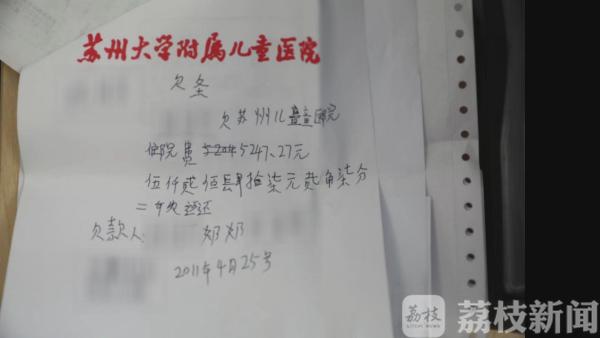 苏州大学附属儿童医院
欠条
欠苏州儿童医院
住院费 5247.27元
伍仟贰佰肆拾柒元贰角柒分
二年内还
欠款人: 邓邓
2011年4月25号
荔枝
LITCHI NEWS
荔枝新闻